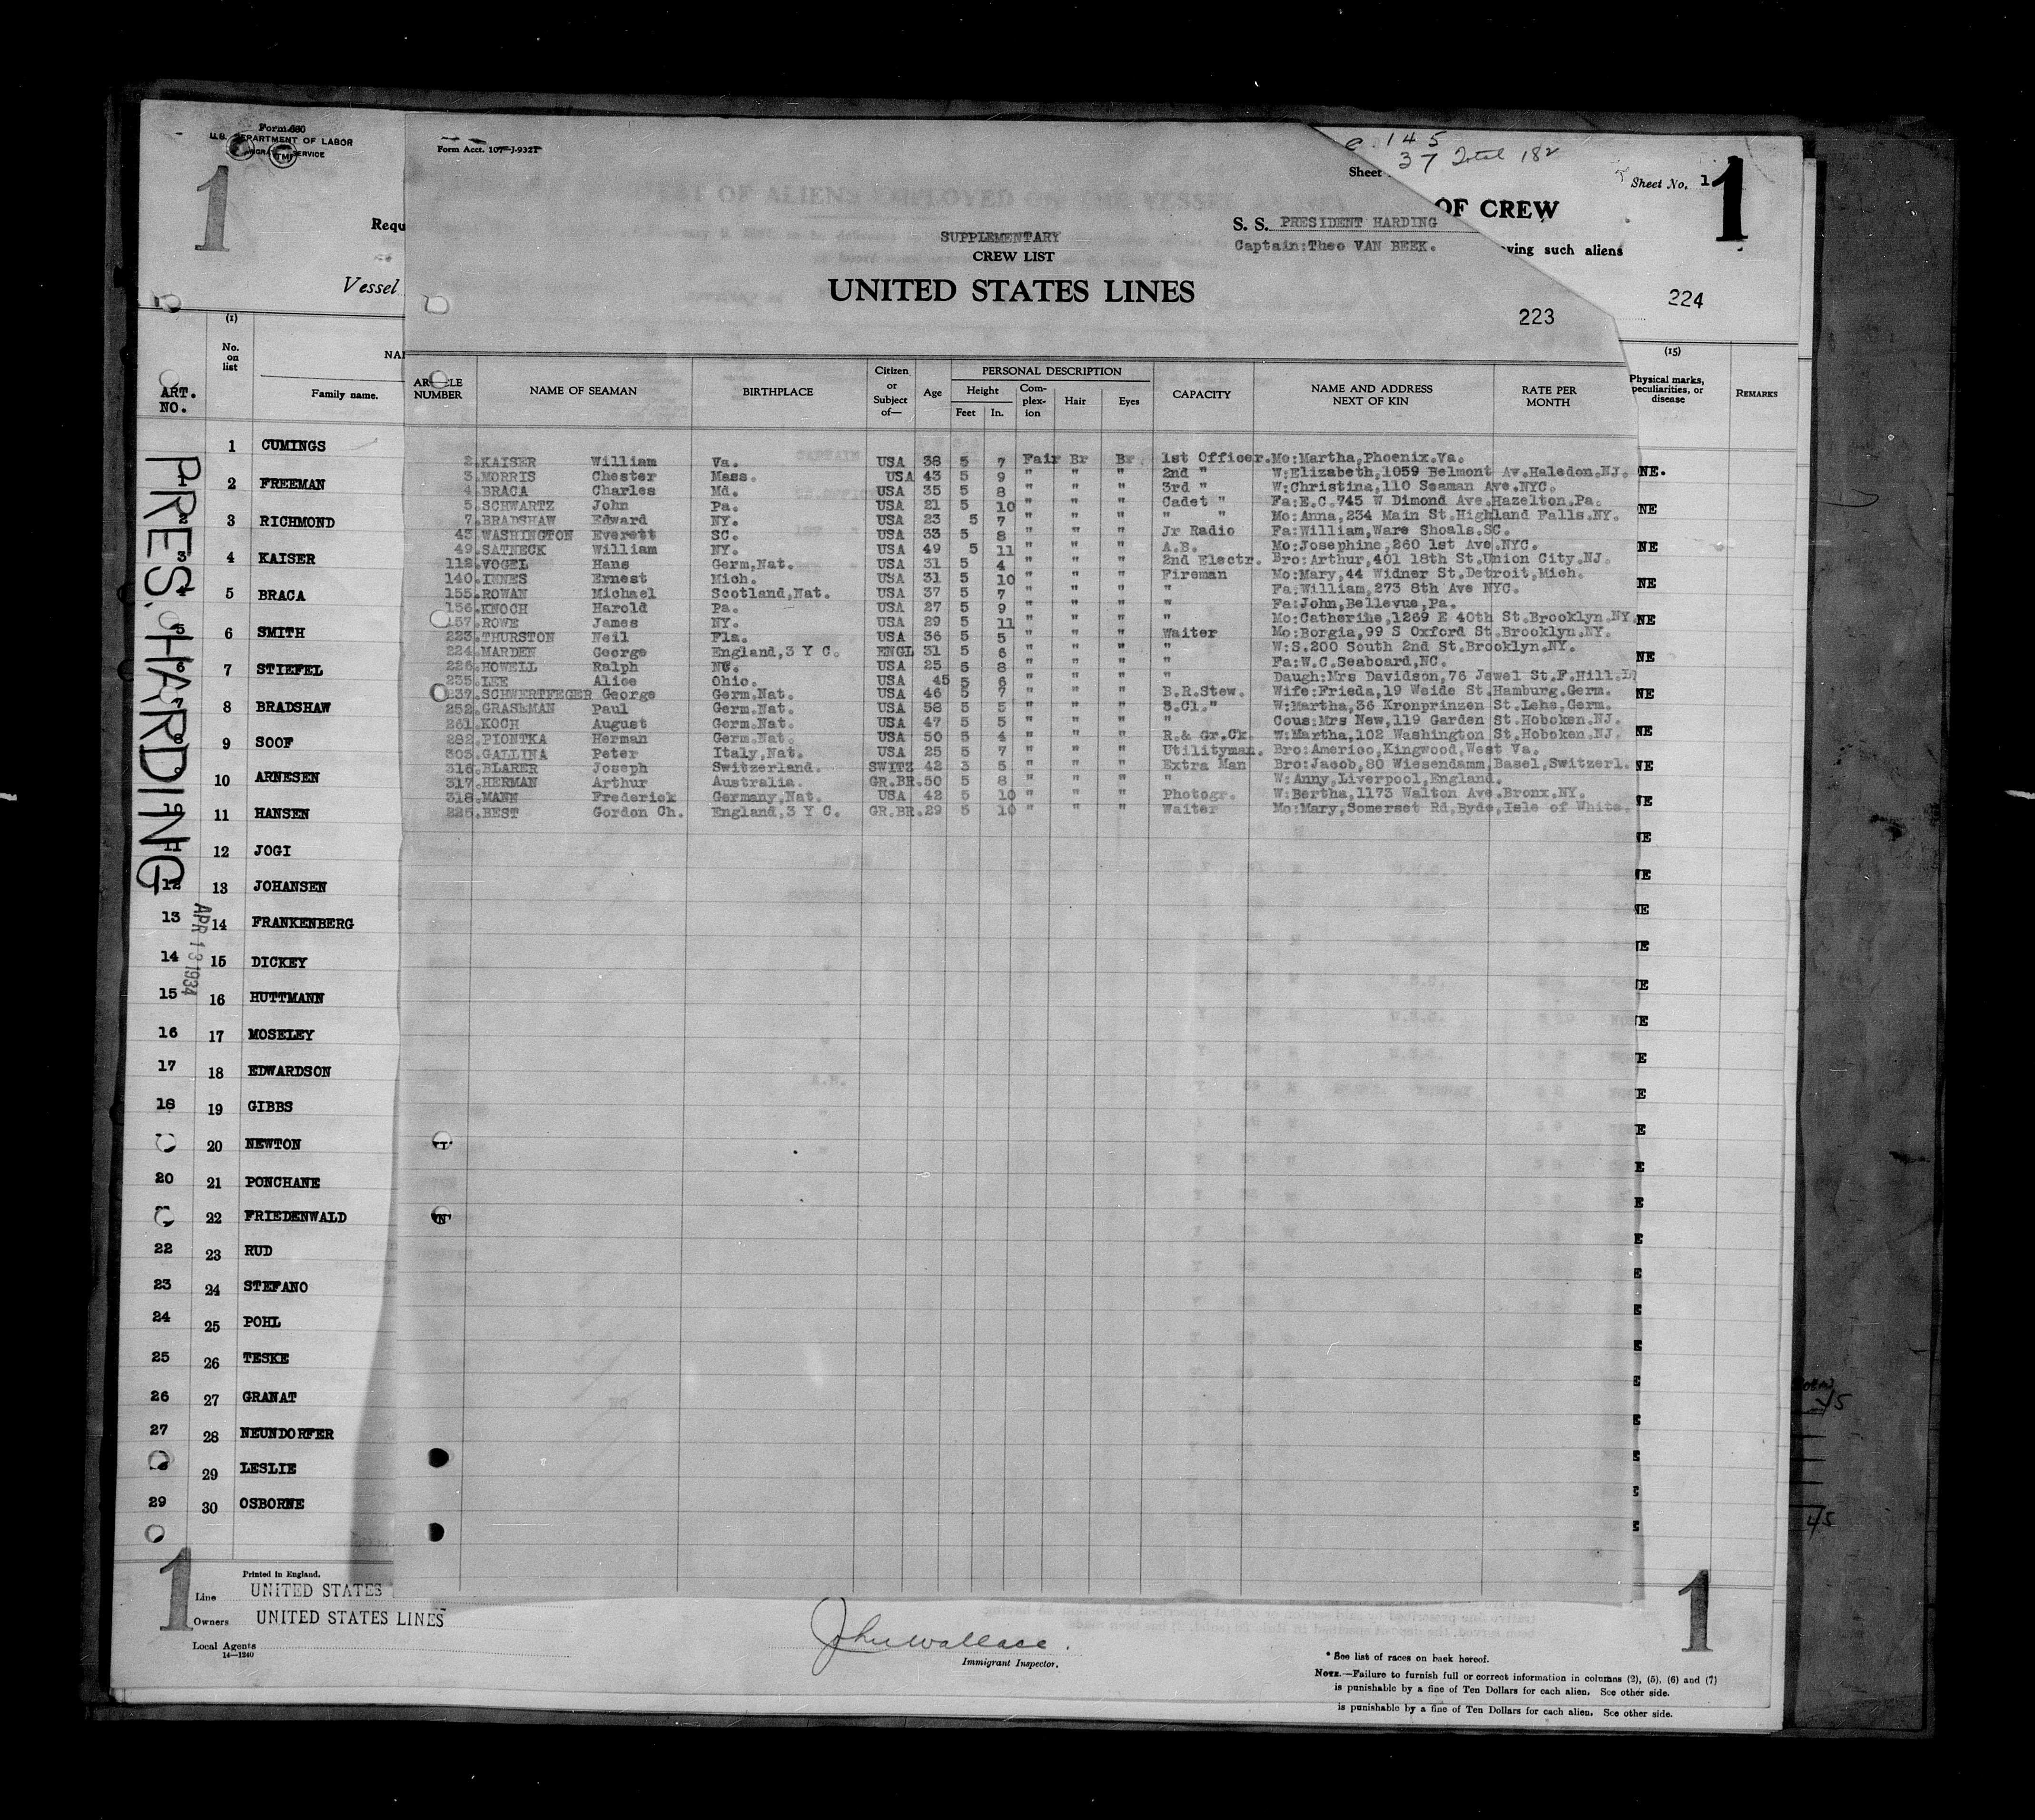 Form 680
U.S. DEPARTMENT OF LABOR
SERVICE
1
Requ
Vessel
Form Acct. 107-J-932T
e. 145
37 Total 182
Sheet
Sheet No. 1
1
OF CREW
ving such aliens
S. S. PRESIDENT HARDING
Captain:Theo VAN BEEK.
SUPPLEMENTARY
CREW LIST
UNITED STATES LINES
223
224
(1) No. on list
NA
Family name.
ART. NO.
(15)
Physical marks, peculiarities, or disease
REMARKS
ARTICLE NUMBER NAME OF SEAMAN BIRTHPLACE Citizen or Subject of— Age PERSONAL DESCRIPTION Height Feet In. Com-plex-ion Hair Eyes CAPACITY NAME AND ADDRESS NEXT OF KIN RATE PER MONTH
2.KAISER William Va. USA 38 5 7 Fair Br Br 1st Officer.Mo:Martha,Phoenix.Va.
3.MORRIS Chester Mass. USA 43 5 9 " " " 2nd " W:Elizabeth,1059 Belmont Av.Haledon.NJ.
4.BRACA Charles Md. USA 35 5 8 " " " 3rd " W:Christina,110 Seaman Ave.NYC.
5.SCHWARTZ John Pa. USA 21 5 10 " " " Cadet " Fa:E.C.745 W Dimond Ave.Hazelton,Pa.
7.BRADSHAW Edward NY. USA 23 5 7 " " " " " Mo:Anna,234 Main St.Highland Falls.NY.
43.WASHINGTON Everett SC. USA 33 5 8 " " " Jr Radio Fa:William,Ware Shoals.SC.
49.SATNECK William NY. USA 49 5 11 " " " A.B. Mo:Josephine,260 1st Ave.NYC.
112.VOGEL Hans Germ,Nat. USA 31 5 4 " " " 2nd Electr. Bro:Arthur,401 18th St.Union City.NJ.
140.INNES Ernest Mich. USA 31 5 10 " " " Fireman Mo:Mary,44 Widner St.Detroit,Mich.
155.ROWAN Michael Scotland,Nat. USA 37 5 7 " " " " Fa:William,273 8th Ave NYC.
156.KNOCH Harold Pa. USA 27 5 9 " " " " Fa:John,Bellevue,Pa.
157.ROWE James NY. USA 29 5 11 " " " " Mo:Catherine,1269 E 40th St.Brooklyn.NY.
223.THURSTON Neil Fla. USA 36 5 5 " " " Waiter Mo:Borgia,99 S Oxford St.Brooklyn.NY.
224.MARDEN George England,3 Y C. ENGL 31 5 6 " " " " W:S.200 South 2nd St.Brooklyn.NY.
226.HOWELL Ralph NC. USA 25 5 8 " " " " Fa:W.C.Seaboard,NC.
235.LEE Alice Ohio. USA 45 5 6 " " " Daugh:Mrs Davidson,76 Jewel St.F.Hill.
237.SCHWERTFEGER George Germ.Nat. USA 46 5 7 " " " B.R.Stew. Wife:Frieda,19 Weide St.Hamburg.Germ.
252.GRASEMAN Paul Germ.Nat. USA 58 5 5 " " " S.Cl." W:Martha,36 Kronprinzen St.Lehe,Germ.
261.KOCH August Germ.Nat. USA 47 5 5 " " " " Cous:Mrs New,119 Garden St.Hoboken.NJ.
282.PIONTKA Herman Germ.Nat. USA 50 5 4 " " " R.& Gr.Ck. W:Martha,102 Washington St.Hoboken.NJ.
303.GALLINA Peter Italy,Nat. USA 25 5 7 " " " Utilityman. Bro:Americo,Kingwood,West Va.
316.BLARER Joseph Switzerland. SWITZ 42 3 5 " " " Extra Man Bro:Jacob,80 Wiesendamm,Basel,Switzerl.
317.HERMAN Arthur Australia. GR.BR.50 5 8 " " " " W:Anny,Liverpool,England.
318.MANN Frederick Germany,Nat. USA 42 5 10 " " " Photogr. W:Bertha,1173 Walton Ave.Bronx.NY.
225.BEST Gordon Ch. England,3 Y C. GR.BR.29 5 10 " " " Waiter Mo:Mary,Somerset Rd,Byde,Isle of White.
PRES. HARDING
APR 13 1934
1 CUMINGS
2 FREEMAN
2 3 RICHMOND
3 4 KAISER
4 5 BRACA
5 6 SMITH
6 7 STIEFEL
7 8 BRADSHAW
8 9 SOOF
10 ARNESEN
11 HANSEN
11 12 JOGI
12 13 JOHANSEN
13 14 FRANKENBERG
14 15 DICKEY
15 16 HUTTMANN
16 17 MOSELEY
17 18 EDWARDSON
18 19 GIBBS
20 NEWTON
20 21 PONCHANE
22 FRIEDENWALD
22 23 RUD
23 24 STEFANO
24 25 POHL
25 26 TESKE
26 27 GRANAT
27 28 NEUNDORFER
29 LESLIE
29 30 OSBORNE
1
Printed in England.
Line UNITED STATES
Owners UNITED STATES LINES
Local Agents
14—1240
John Wallace.
Immigrant Inspector.
1
* See list of races on back hereof.
NOTE.—Failure to furnish full or correct information in columns (2), (5), (6) and (7)
is punishable by a fine of Ten Dollars for each alien. See other side.
is punishable by a fine of Ten Dollars for each alien. See other side.